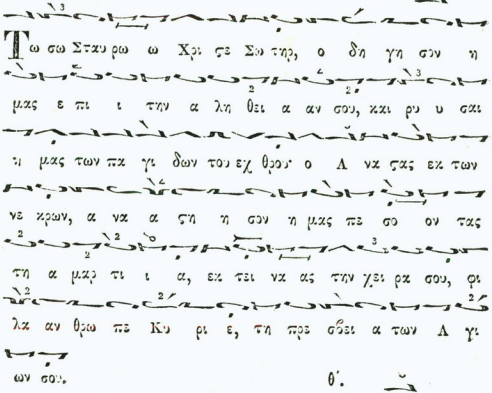 Τω σω Σταυ ρω ω Χρι ϛε Σω τηρ, ο δη γη σον η
μας ε πι ι την α λη θει α αν σου, και ρυ υ σαι
η μας των πα γι δων του εχ θρου· ο Α να ϛας εκ των
νε κρων, α να α ϛη η σον η μας πε σο ον τας
τη α μαρ τι ι α, εκ τει να ας την χει ρα σου, φι
λα αν θρω πε Κυ ρι ε, τη πρε σβει α των Α γι
ων σου. θ'.